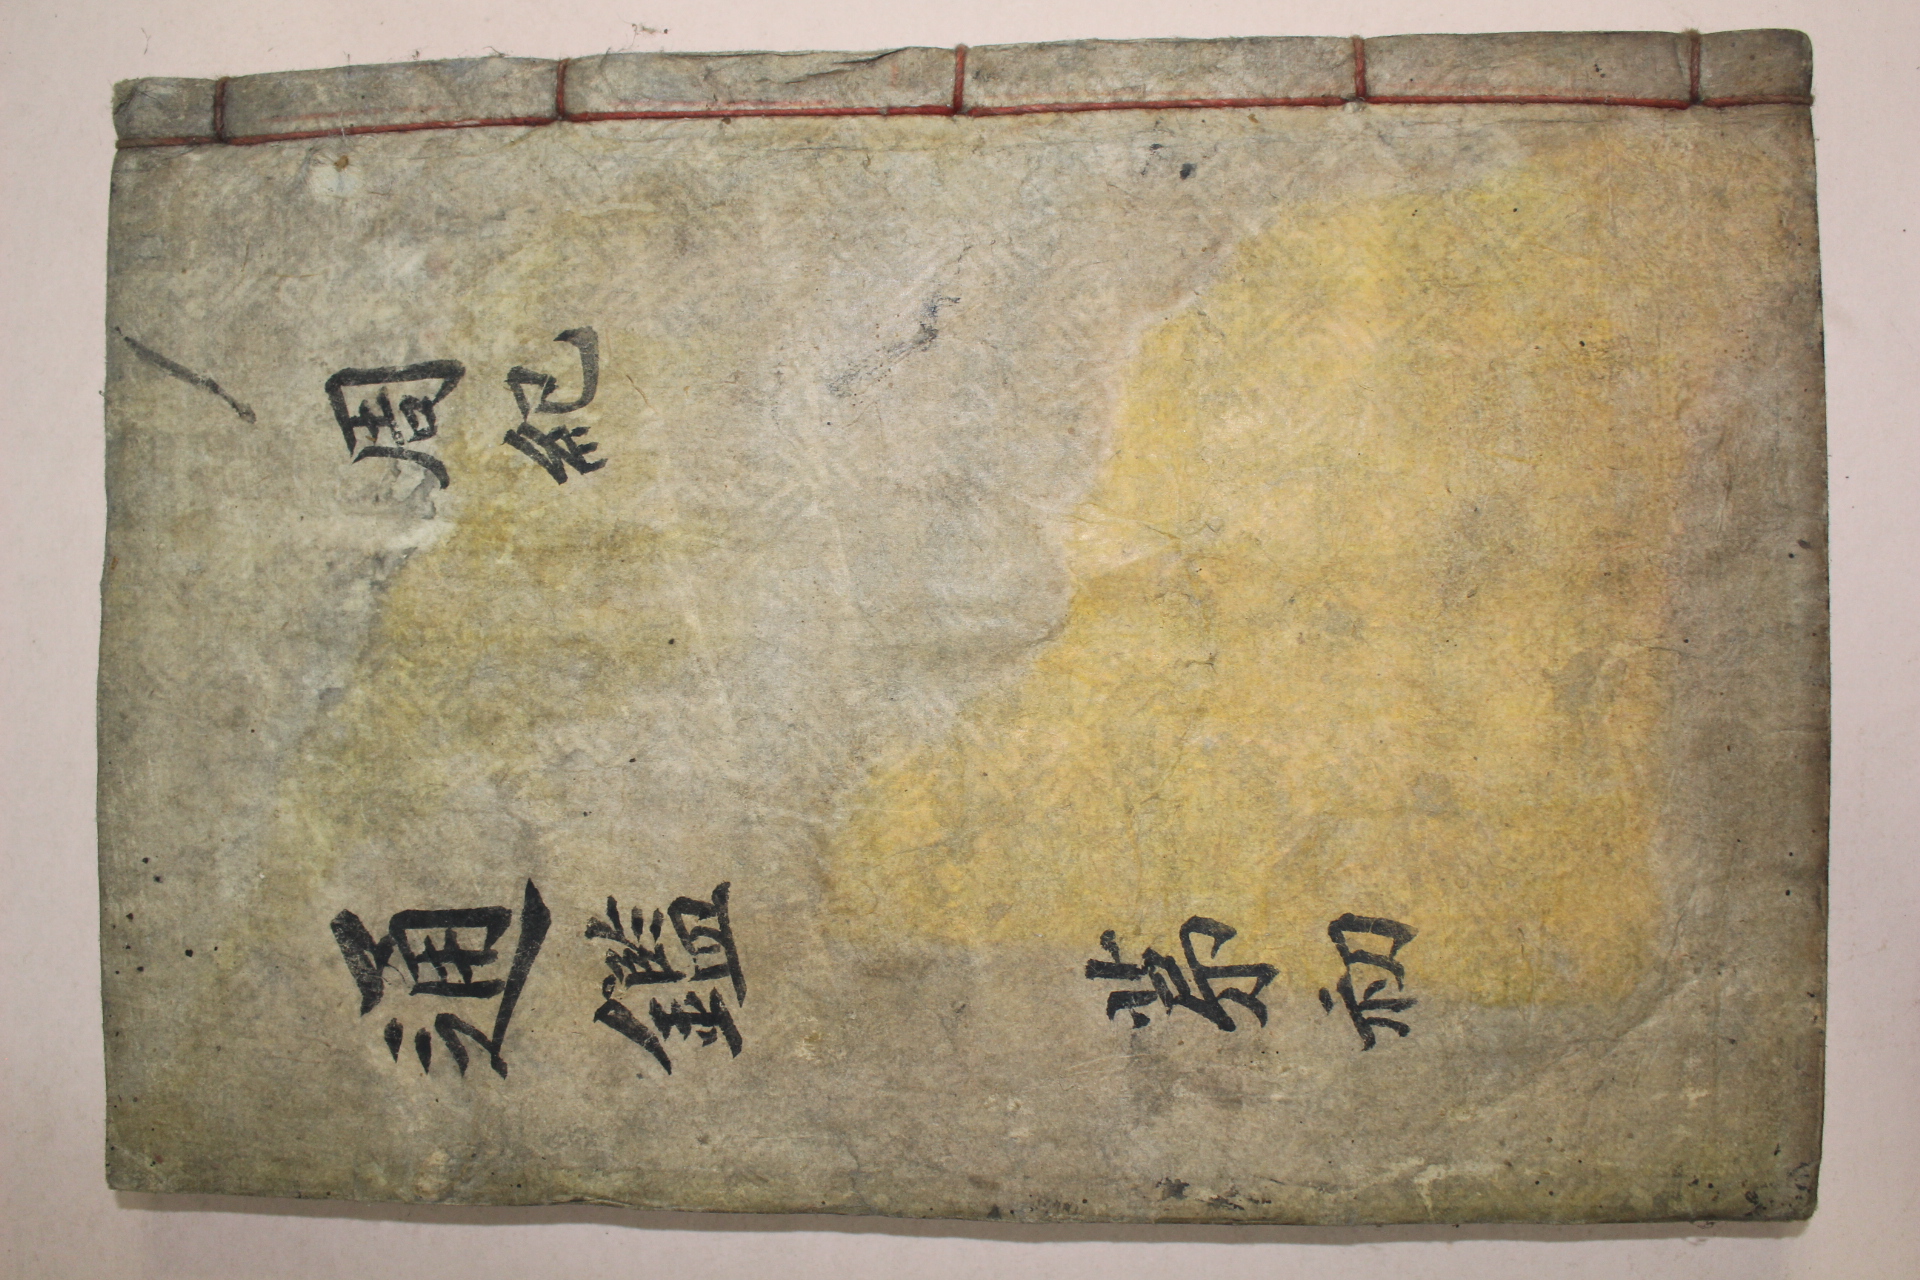 通鑑 苐初
周紀